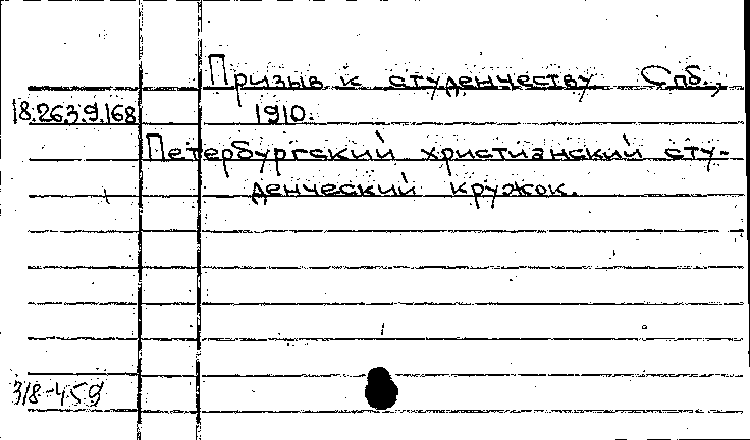 Призыв к студенчеству Спб.,
18.263.9.168 1910.
Петербургский христианский сту-
денческий кружок.
318-459